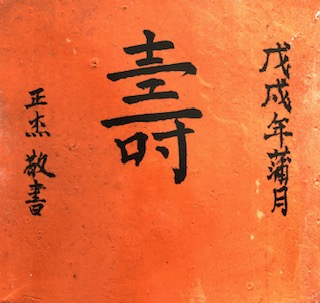 戊戌年蒲月
壽
正杰敬書